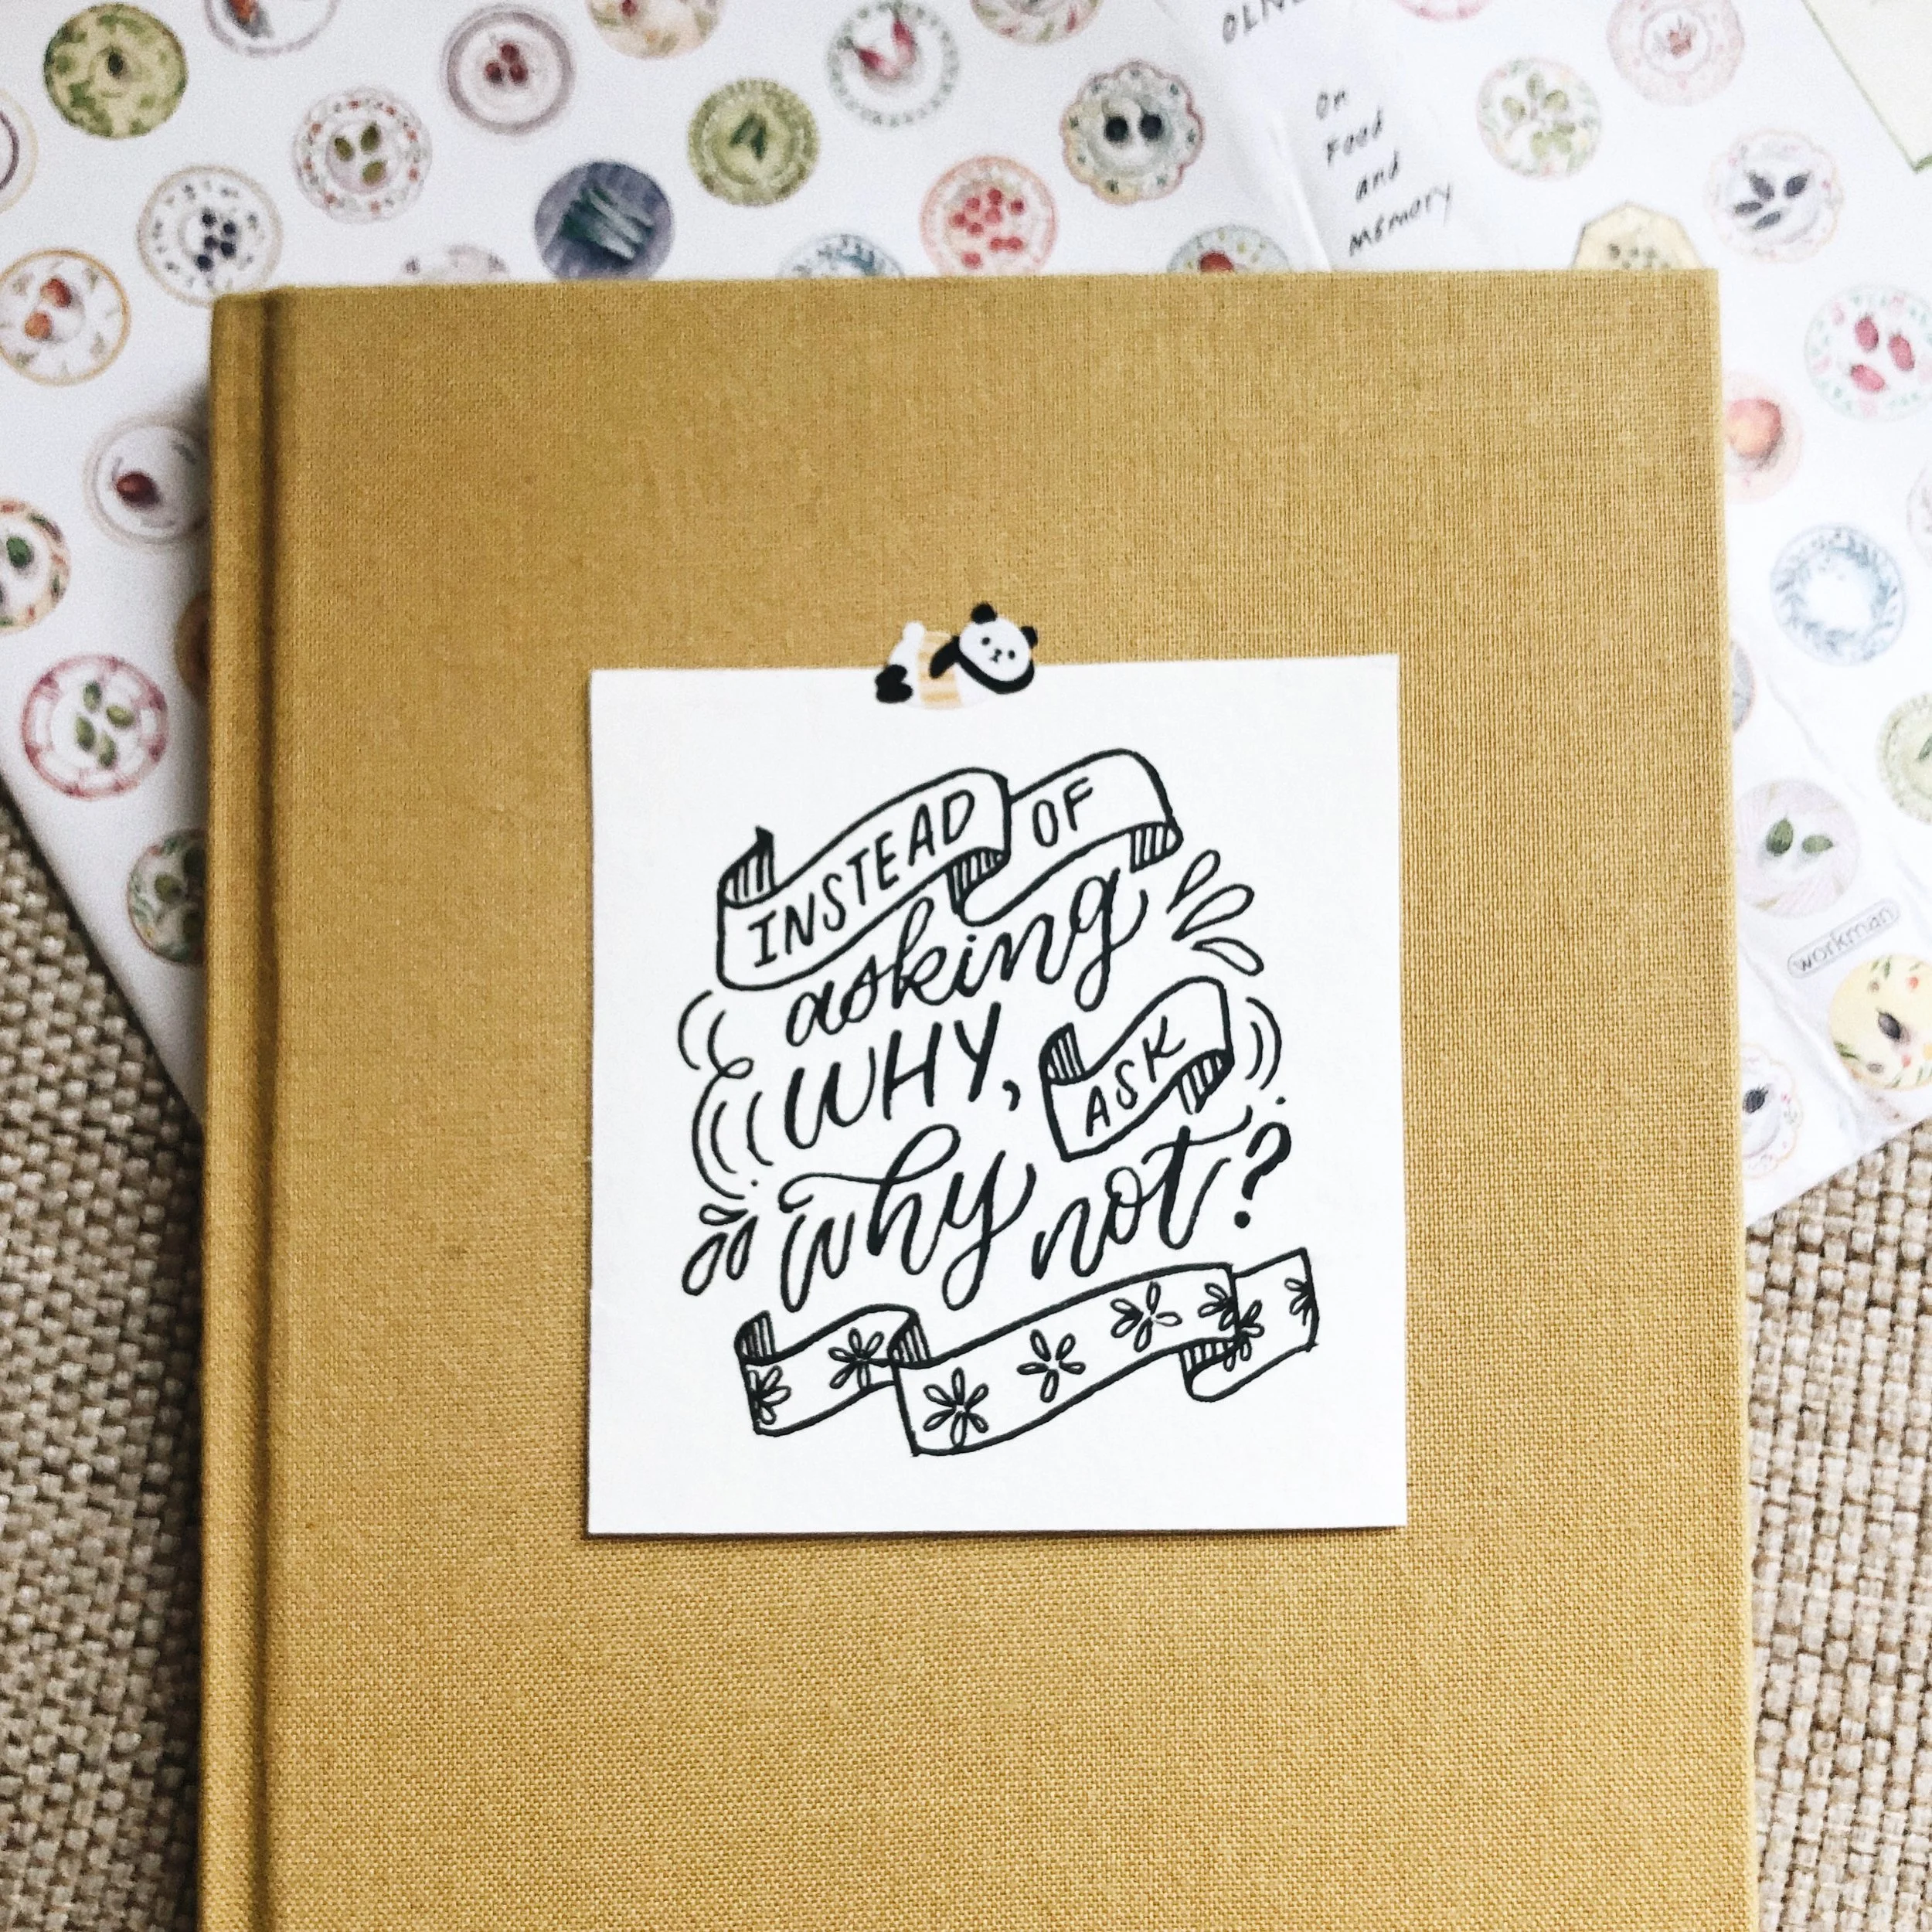 OLIVE
On
Food
and
memory
INSTEAD OF
asking
WHY, ASK
why not?
workman